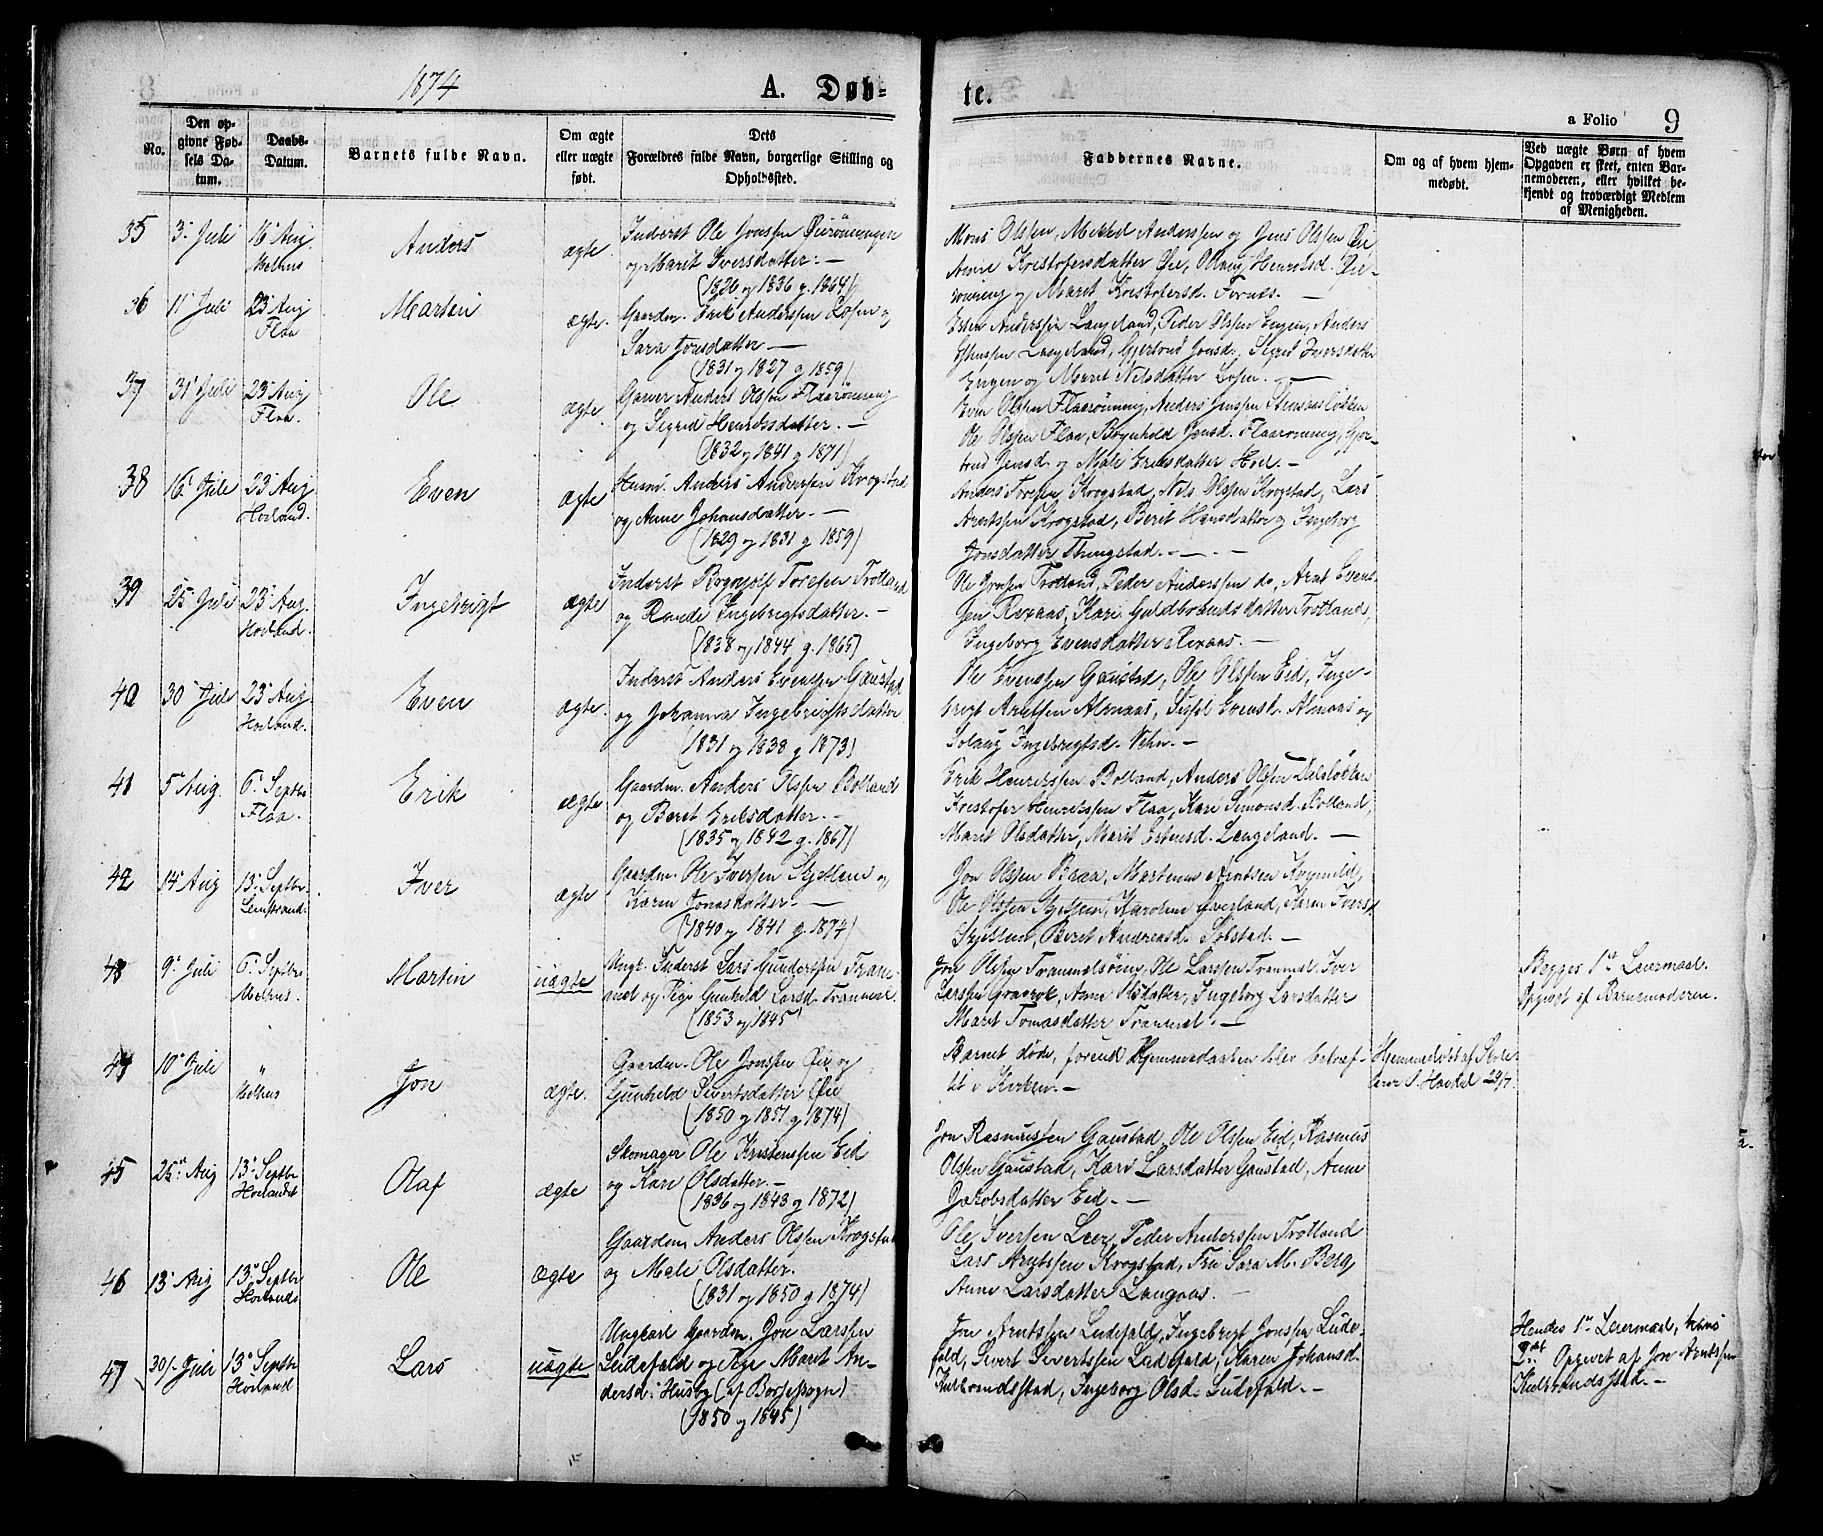 1874
A. Døb-
te.
a Folio
9
No.
Den op-
givne Fød-
sels Da-
tum.
Daabs-
Datum.
Barnets fulde Navn.
Om ægte
eller uægte
født.
Dets
Forældres fulde Navn, borgerlige Stilling og
Opholdssted.
Faddernes Navne.
Om og af hvem hjem-
medøbt.
Ved uægte Børn af hvem
Opgaven er skeet, enten Bar-
nemoderen, eller hvilket be-
kjendt og troværdigt Medlem
af Menigheden.
35 3. Juli 16 Aug
Melhus
Anders
ægte.
Inderst Ole Jonssen Øierönningen
og Marit Iversdatter. —
(1826 og 1836 g. 1864)
Mons Olssen, Mikkel Anderssen og Jens Olssen Øie
Kristofersdatter Øie, Henriksd. Øie-
rönning og Marit Kristofersd. —
36 11 Juli 23 Aug
Flaa
Martin
ægte.
Gaardm. Erik Anderssen Losen og
Sara Jonsdatter —
(1831 og 1827 g 1859)
Esten Anderssen Langeland, Peder Olssen Engen, Anders
Estenssen Langeland, Gjertrud Jonsd., Sigrid Iversdatter
Engen og Marit Nilsdatter Losen. —
37 31 Juli 23 Aug
Flaa.
Ole
ægte.
Garver Anders Olssen Flaarönning
og Sigrid Henriksdatter. —
(1832 og 1841 g 1871)
Even Olssen Flaarönning, Anders Jenssen
Ole Olssen Flaa, Ragnhild Jensd. Flaarönning, Gjer-
trud Jensd. og Mali Eriksdatter Hod. —
38 16. Juli 23 Aug
Horland.
Even
ægte
Husm. Anders Anderssen Krogstad
og Anne Johansdatter. —
(1829 og 1831 g 1859)
Anders Toresen Krogstad, Nils Olssen Krogstad, Lars
Arntssen Krogstad, Berit Hansdatter og Ingeborg
Jonsdatter Thungstad. —
39 25 Juli 23 Aug.
Horland.
Ingebrigt
ægte
Inderst Toresen Trotland
og Randi Ingebrigtsdatter. —
(1838 og 1844 g. 1865)
Ole Jonsen Trotland, Peder Anderssen do, Arnt Evens-
sen Rexaas, Kari Guldbrandsdatter Trotland,
Ingeborg Evensdatter Rexaas. —
40 30 Juli 23 Aug
Horland.
Even
ægte.
Inderst Anders Evenssen Gaustad
og Johanna Ingebrigtsdatter
(1831 og 1838 g 1873)
Ole Evenssen Gaustad, Ole Olssen Eid, Inge-
brigt Arntsen Almaas, Sissil Evensd. Almaas og
Solaug Ingebrigtsd. —
41 5 Aug. 6. Septbr
Flaa.
Erik
ægte
Gaardm. Anders Olssen Rolland
og Beret Eriksdatter. —
(1835 og 1842 g. 1867)
Erik Henrikssen Rolland, Anders Olssen
Kristofer Henrikssen Flaa, Kari Simonsd. Rolland,
Marit Olsdatter, Marit Estensd. Langeland. —
42 14 Aug 13 Septbr.
Leinstrand.
Iver
ægte
Gaardm. Ole Iverssen Skjetlein og
Karen Jonasdatter. —
(1840 og 1841 g. 1874)
Jon Olssen Braa, Martinus Arntsen
Ole Olssen Skjetlein, Karoline Øverland, Karen Iversd
Skjetlein, Beret Andreasd. Solstad. —
43 9. Juli 6. Septbr
Melhus.
Martin
uægte
Ungk. Inderst Lars Gunderssen Tran-
mel og Pige Gunhild Larsd. Tranmæl.
(1853 og 1845)
Jon Olssen Tranmelsöien, Ole Larssen Tranmæl, Iver
Larssen Graarok, Anne Olsdatter, Ingeborg Larsdatter
Marit Tomasdatter Tranmæl. —
Begges 1ste Leiermaal.
Opgivet af Barnemoderen.
44 10 Juli "
Melhus
Jon
ægte.
Gaardm. Ole Jonssen Øie og
Gunhild Sivertsdatter Øie
(1850 og 1851 g 1874)
Barnet døde, forend Hjemmedaaben blev bekræf-
tet i Kirken. —
Hjemmedøbt af Skole-
lærer 29/7.
45 25. Aug 13 Septbr
Horlands
Olaf
ægte
Skomager Ole Kristenssen Eid
og Kari Olsdatter. —
(1836 og 1843 g 1872)
Jon Rasmussen Gaustad, Ole Olssen Eid, Rasmus
Olssen Gaustad, Kari Larsdatter Gaustad, Anne
Jakobsdatter Eid. —
46 13 Aug 13 Septbr
Horlands
Ole
ægte
Gaardm. Anders Olssen Krogstad
og Mali Olsdatter.
(1831 og 1850 g 1874)
Ole Iversen Leer, Peder Anderssen Trotland
Lars Arntssen Krogstad, Fru Sara M. Berg,
Anne Larsdatter Langaas. —
47 30/- Juli 13 Septbr
Horland
Lars
uægte
Ungkarl Gaardm. Jon Larssen
Leidefald og Pige Marit An-
dersd. Husby (af Borsesogn)
(1850 og 1845)
Jon Arntssen Ludefald, Ingebrigt Jonssen Lude-
fald, Sivert Sivertssen Ludefald, Maren Johansd.
Kulbrandsstad, Ingeborg Olsd. Ludefald. —
Hendes 1ste Leiermaal, hans
2det. Opgivet af Jon Arntssen
Kulbrandsstad. —